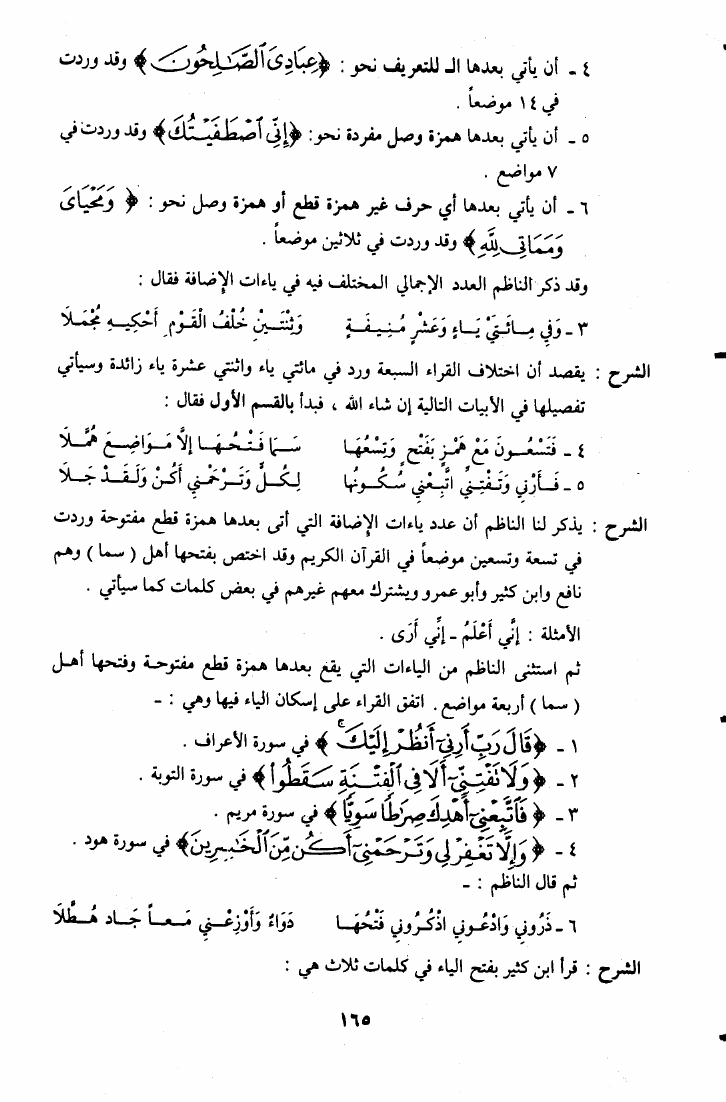 ٤ - أن يأتي بعدها الـ للتعريف نحو : ﴿عِبَادِىَ ٱلصَّٰلِحُونَ﴾ وقد وردت
في ١٤ موضعاً .
٥ - أن يأتي بعدها همزة وصل مفردة نحو: ﴿إِنِّى ٱصۡطَفَيۡتُكَ﴾ وقد وردت في
٧ مواضع .
٦ - أن يأتي بعدها أي حرف غير همزة قطع أو همزة وصل نحو : ﴿ وَمَحۡيَاىَ
وَمَمَاتِى لِلَّهِ﴾ وقد وردت في ثلاثين موضعاً .
وقد ذكر الناظم العدد الإجمالي المختلف فيه في ياءات الإضافة فقال :
٣ - وَفِي مِـائَتَيْ يَـاءٍ وَعَشْرٍ مُنِيفَـةٍ وَثِنْتَـيْنِ خُلْفُ الْقَـوْمِ أَحْكِيـهِ مُجْمَـلَا
الشرح : يقصد أن اختلاف القراء السبعة ورد في مائتي ياء واثنتي عشرة ياء زائدة وسيأتي
تفصيلها في الأبيات التالية إن شاء الله ، فبدأ بالقسم الأول فقال :
٤ - فَتِسْعُـونَ مَعْ هَمْزٍ بِفَتْحٍ وَتِسْعُهَا سَـمَا فَتْحُهَـا إِلَّا مَـوَاضِـعَ هُمَّـلَا
٥ - فَـأَرْنِي وَتَفْتِنِّي اتَّبِعْنِي سُكُـونُهَا لِكُـلٍّ وَتَـرْحَمْنِي أَكُنْ وَلَقَـدْ جَـلَا
الشرح : يذكر لنا الناظم أن عدد ياءات الإضافة التي أتى بعدها همزة قطع مفتوحة وردت
في تسعة وتسعين موضعاً في القرآن الكريم وقد اختص بفتحها أهل ( سما ) وهم
نافع وابن كثير وأبو عمرو ويشترك معهم غيرهم في بعض كلمات كما سيأتي .
الأمثلة : إِنِّي أَعْلَمُ - إِنِّي أَرَى .
ثم استثنى الناظم من الياءات التي يقع بعدها همزة قطع مفتوحة وفتحها أهل
( سما ) أربعة مواضع . اتفق القراء على إسكان الياء فيها وهي : -
١ - ﴿قَالَ رَبِّ أَرِنِىٓ أَنظُرۡ إِلَيۡكَۚ ﴾ في سورة الأعراف .
٢ - ﴿وَلَا تَفۡتِنِّىٓۚ أَلَا فِى ٱلۡفِتۡنَةِ سَقَطُواْ﴾ في سورة التوبة .
٣ - ﴿ فَٱتَّبِعۡنِىٓ أَهۡدِكَ صِرَٰطًا سَوِيًّا ﴾ في سورة مريم .
٤ - ﴿ وَإِلَّا تَغۡفِرۡ لِى وَتَرۡحَمۡنِىٓ أَكُن مِّنَ ٱلۡخَٰسِرِينَ﴾ في سورة هود .
ثم قال الناظم : -
٦ - ذَرُونِي وَادْعُـونِي اذْكُـرُونِي فَتْحُهَـا دَوَاءٌ وَأَوْزِعْـنِي مَـعـاً جَـادَ هُـطَّلَا
الشرح : قرأ ابن كثير بفتح الياء في كلمات ثلاث هي :
١٦٥